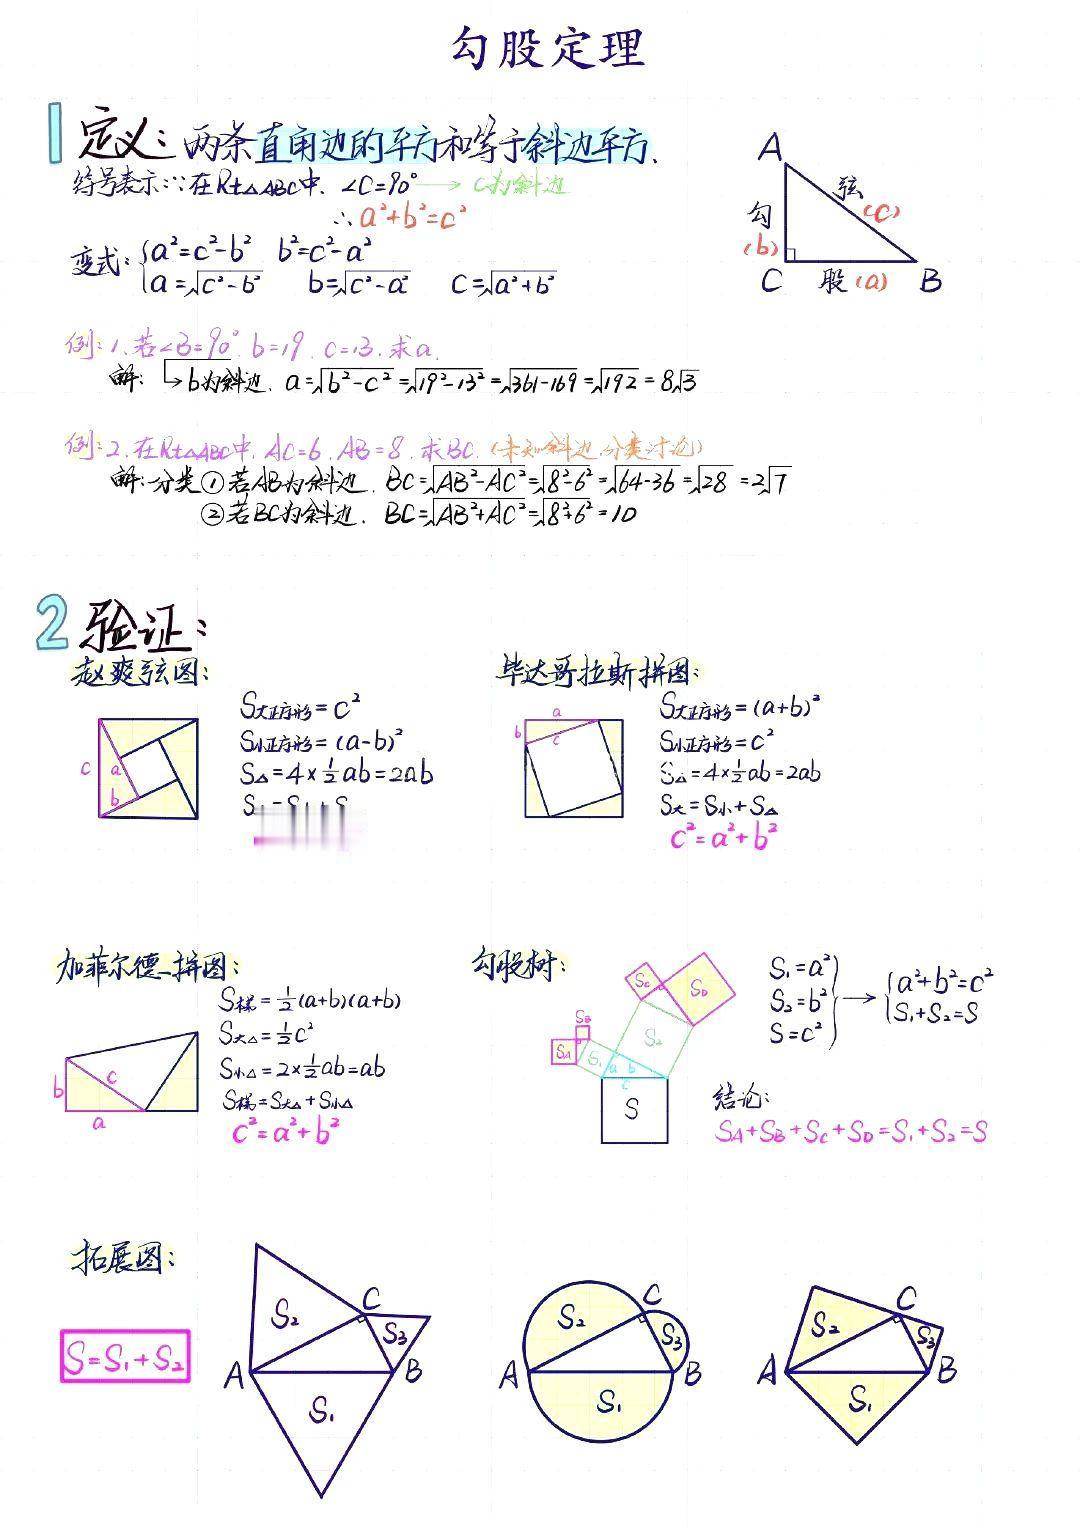 勾股定理
1 定义：两条直角边的平方和等于斜边平方.
符号表示：∵在Rt△ABC中，∠C=90° → c为斜边
∴a²+b²=c²
变式：{a²=c²-b² b²=c²-a²
a=√c²-b² b=√c²-a² c=√a²+b²
A
勾
(b)
弦
(c)
C 股(a) B
例：1、若∠B=90°，b=19，c=13，求a.
解： ↳b为斜边，a=√b²-c²=√19²-13²=√361-169=√192=8√3
例：2、在Rt△ABC中，AC=6，AB=8，求BC.（未知斜边，分类讨论）
解：分类①若AB为斜边，BC=√AB²-AC²=√8²-6²=√64-36=√28=2√7
②若BC为斜边，BC=√AB²+AC²=√8²+6²=10
2 验证：
赵爽弦图：
c a b
S大正方形=c²
S小正方形=(a-b)²
S△=4×½ab=2ab
毕达哥拉斯拼图：
a b c
S大正方形=(a+b)²
S小正方形=c²
S△=4×½ab=2ab
S大=S小+S△
c²=a²+b²
加菲尔德拼图：
b c a
S梯=½(a+b)(a+b)
S大△=½c²
S小△=2×½ab=ab
S梯=S大△+S小△
c²=a²+b²
勾股树：
SC SD
SB
SA S₁ S₂
a b
c
S
S₁=a²
S₂=b²
S=c²
→ {a²+b²=c²
S₁+S₂=S
结论：
SA+SB+SC+SD=S₁+S₂=S
拓展图：
S=S₁+S₂
S₂ C S₃
A B
S₁
S₂ C S₃
A B
S₁
S₂ C S₃
A B
S₁